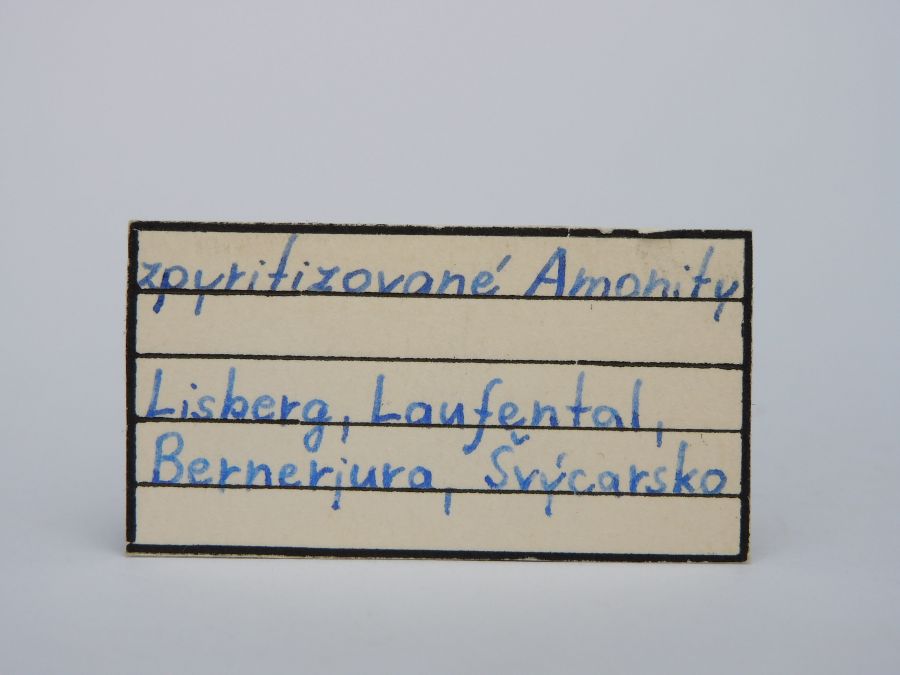 zpyritizované Amonity
Lisberg, Laufental,
Bernerjura, Švýcarsko